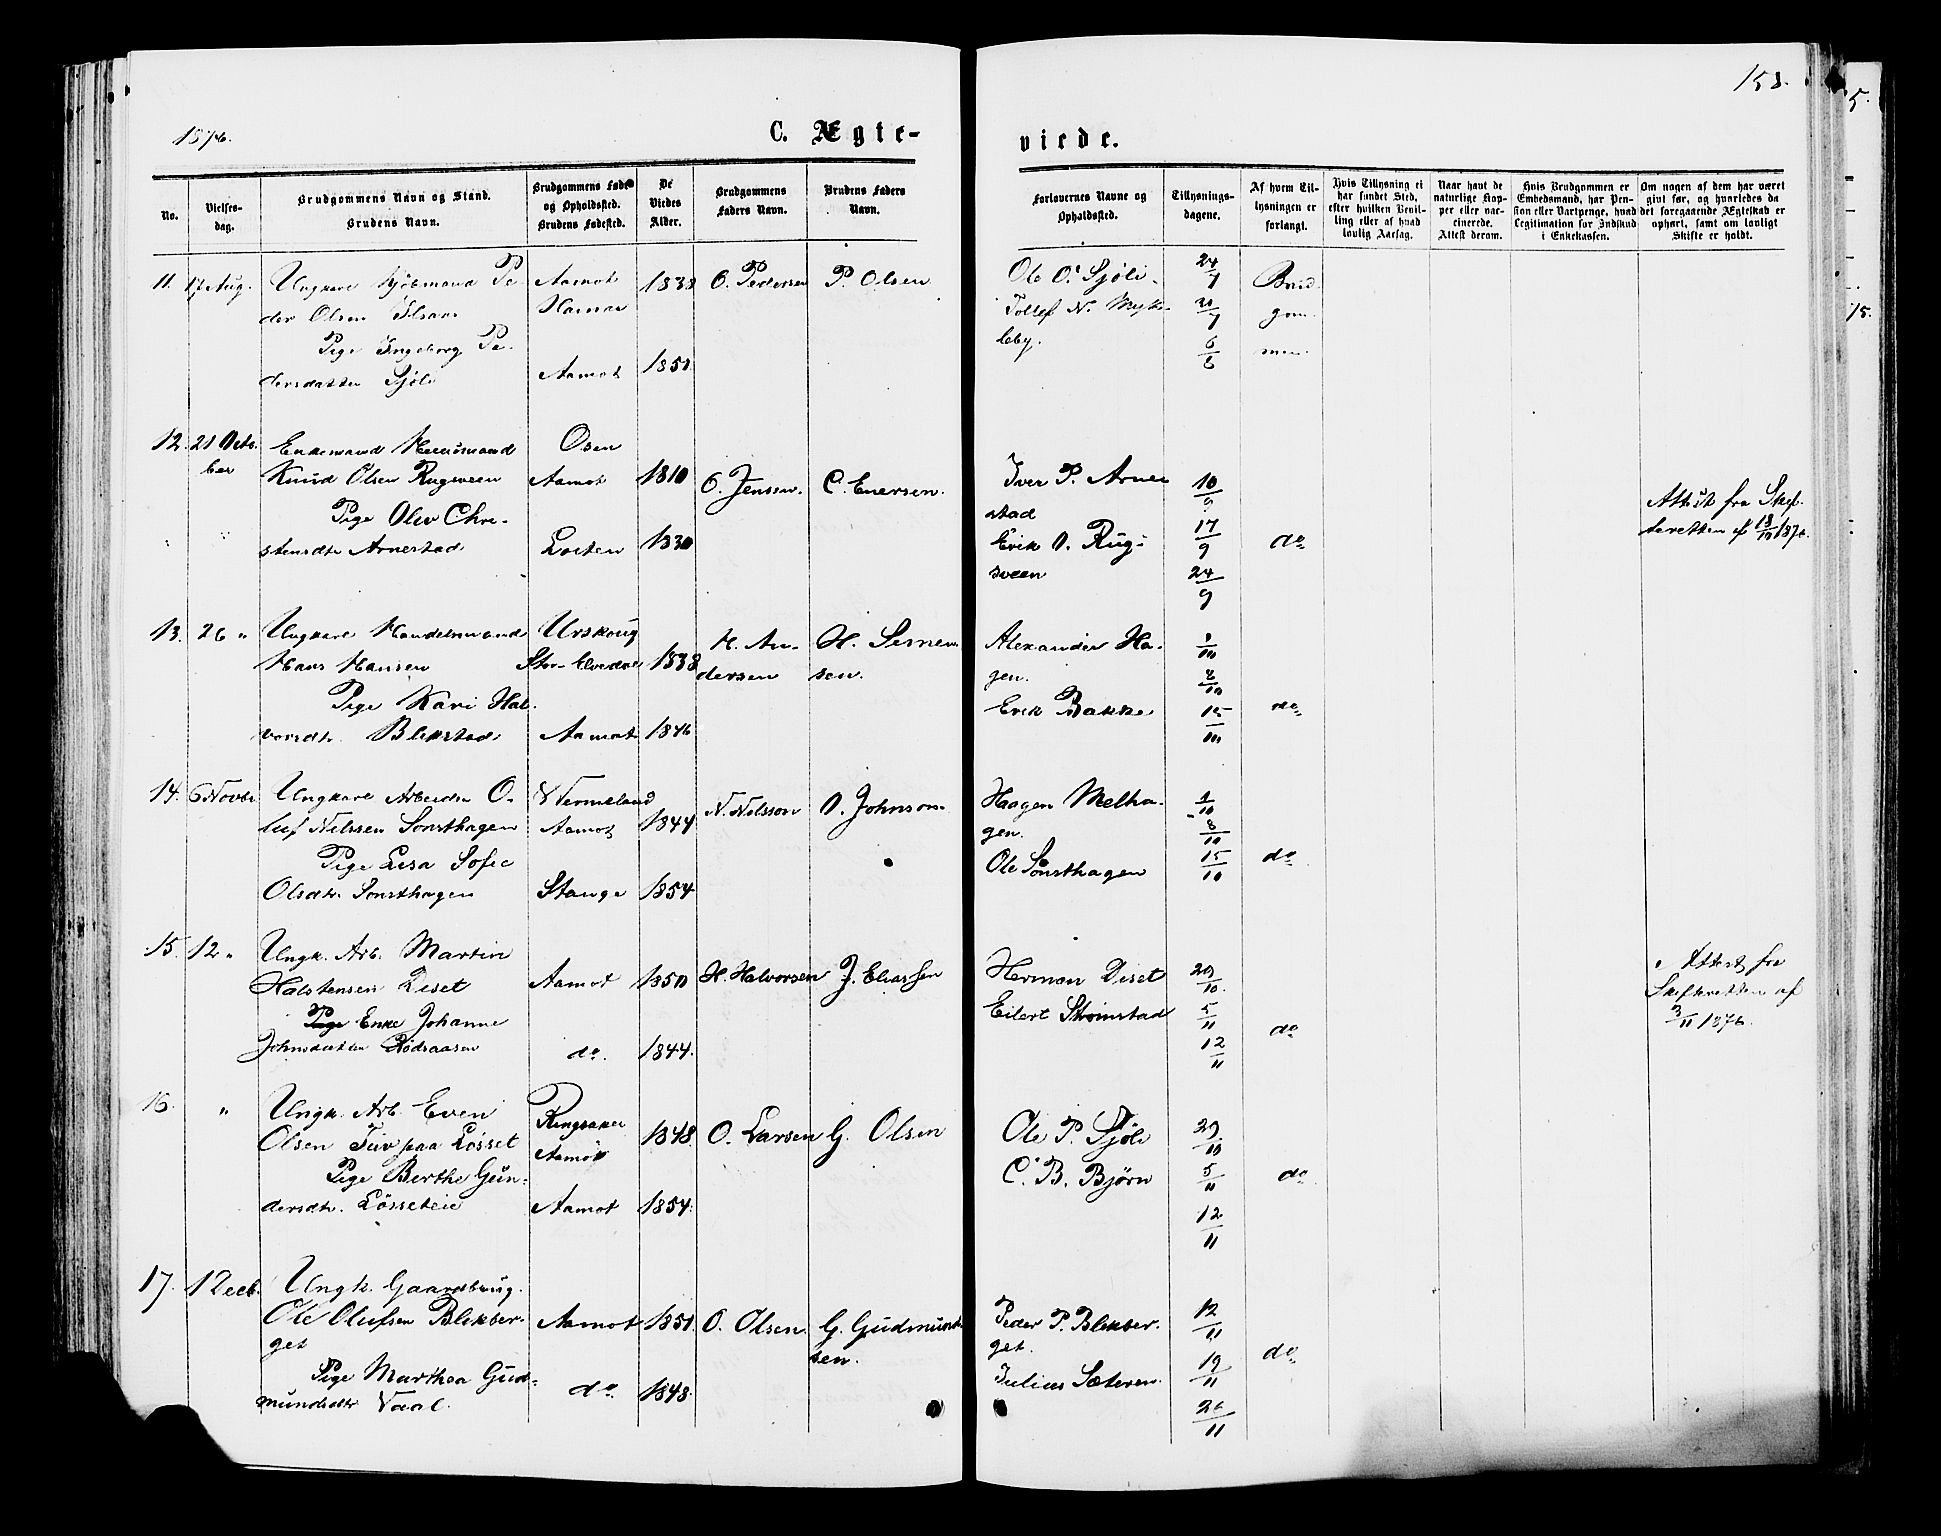 158.
5.
1876.
C. Ægte-
viede.
No.
Vielses-
dag.
Brudgommens Navn og Stand.
Brudens Navn.
Brudgommens Føde-
og Opholdssted.
Brudens Fødested.
De
Viedes
Alder.
Brudgommens
Faders Navn.
Brudens Faders
Navn.
Forlovernes Navne og
Opholdssted.
Tillysnings-
dagene.
Af hvem Til-
lysningen er
forlangt.
Hvis Tillysning ei
har fundet Sted,
efter hvilken Bevil-
ling eller af hvad
lovlig Aarsag.
Naar havt de
naturlige Kop-
per eller vac-
cinerede.
Attest derom.
Hvis Brudgommen er
Embedsmand, har Pen-
sion eller Vartpenge, hvad
Legitimation for Indskud
i Enkekassen.
Om nogen af dem har været
gift før, og hvorledes da
det foregaaende Ægteskab er
ophørt, samt om lovligt
Skifte er holdt.
11. 17 Aug.
Ungkarl Pe-
der Olsen
Pige Ingeborg Pe-
dersdatter Sjöli
Aamot
Hamar
Aamot
1838
1851
O. Pedersen
P. Olsen
Ole O. Sjöli
Tollef N. Myk-
leby.
24/7
31/7
6/8
Brud
gom
men
12. 21 Octo-
ber
Enkemand Huusmand
Knud Olsen Rugsveen
Pige Oliv Chri-
stensdtr Arnestad
Osen
Aamot
Løiten
1810
1830
O. Jensen.
C. Enersen.
Iver P. Arne
stad
Erik O. Rug-
sveen
10/9
17/9
24/9
do
Attest fra Skif-
teretten af 13/10 1876.
13. 26 "
Ungkarl Handelsmand
Hans Hansen
Pige Kari Hal-
vorsdtr. Blikstad
Urskoug
Stor-Elvedal
Aamot
1838
1846
H. An-
dersen
H. Semen-
sen.
Alexander Ha-
gen.
Erik Bakke
1/10
8/10
15/10
do
14. 6 Novbr
Ungkarl Arbeider O-
luf Nilssen Sonsthagen
Pige Lisa Sofie
Olsdtr. Sonsthagen
Vermeland
Aamot
Stange
1844
1854
N. Nilsson
O. Johnson
Haagen Melha-
gen.
Ole Sonsthagen
1/10
8/10
15/10
do
15. 12 "
Ungk. Arb. Martin
Halstensen Deset
Pige Enke Johanne
Johnsdatter Rødsaasen
Aamot
do.
1850
1844.
H. Halvorsen
J. Eliassen
Herman Deset
Eilert Strømstad
29/10
5/11
12/11
do
Attest fra
Skifteretten af
3/11 1876.
16. "
Ungk. Arb. Even
Olsen Tuv paa Løsset
Pige Berthe Gun-
dersdtr. Løsseteie
Ringsaker
Aamot
Aamot
1848.
1854.
O. Larsen
G. Olsen
Ole P. Sjöli
C. B. Bjørn
29/10
5/11
12/11
do
17. 1 Decb.
Ungk. Gaardbrug.
Ole Olufsen Blikber-
get
Pige Marthea Gud-
mundsdtr Vaal.
Aamot
do.
1851
1848
O. Olsen.
G. Gudmund-
sen.
Peder P. Blikber-
get.
Julius Sæteren
12/11
19/11
26/11
do